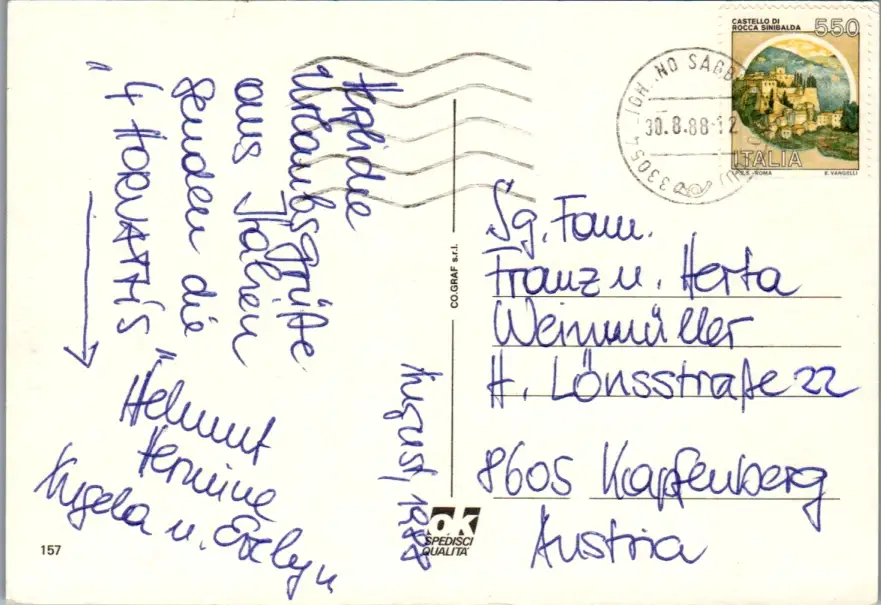 Herzliche
Urlaubsgrüße
aus Italien
senden die
"4 HORVATH'S"
Helmut
Hermine
Angela u. Evelyn
August, 1988
157
CO.GRAF s.r.l.
ok
SPEDISCI
QUALITA'
CASTELLO DI
ROCCA SINIBALDA
550
ITALIA
I.P.Z.S. - ROMA
E. VANGELLI
33054
NO SABB
30.8.88-12
(UD)
Sg. Fam.
Franz u. Herta
Weinmüller
H. Lönsstraße 22
8605 Kapfenberg
Austria